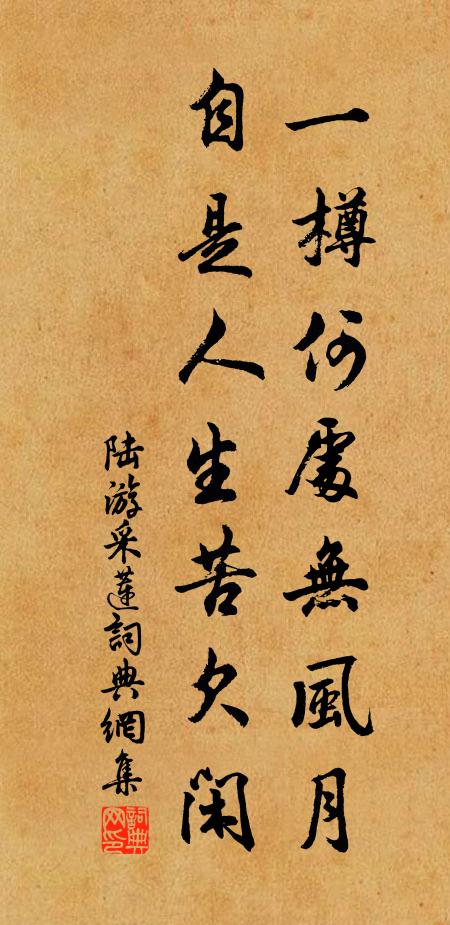 一樽何處無風月
自是人生苦欠閑
陆游采蓮詞典網集
詞典网印